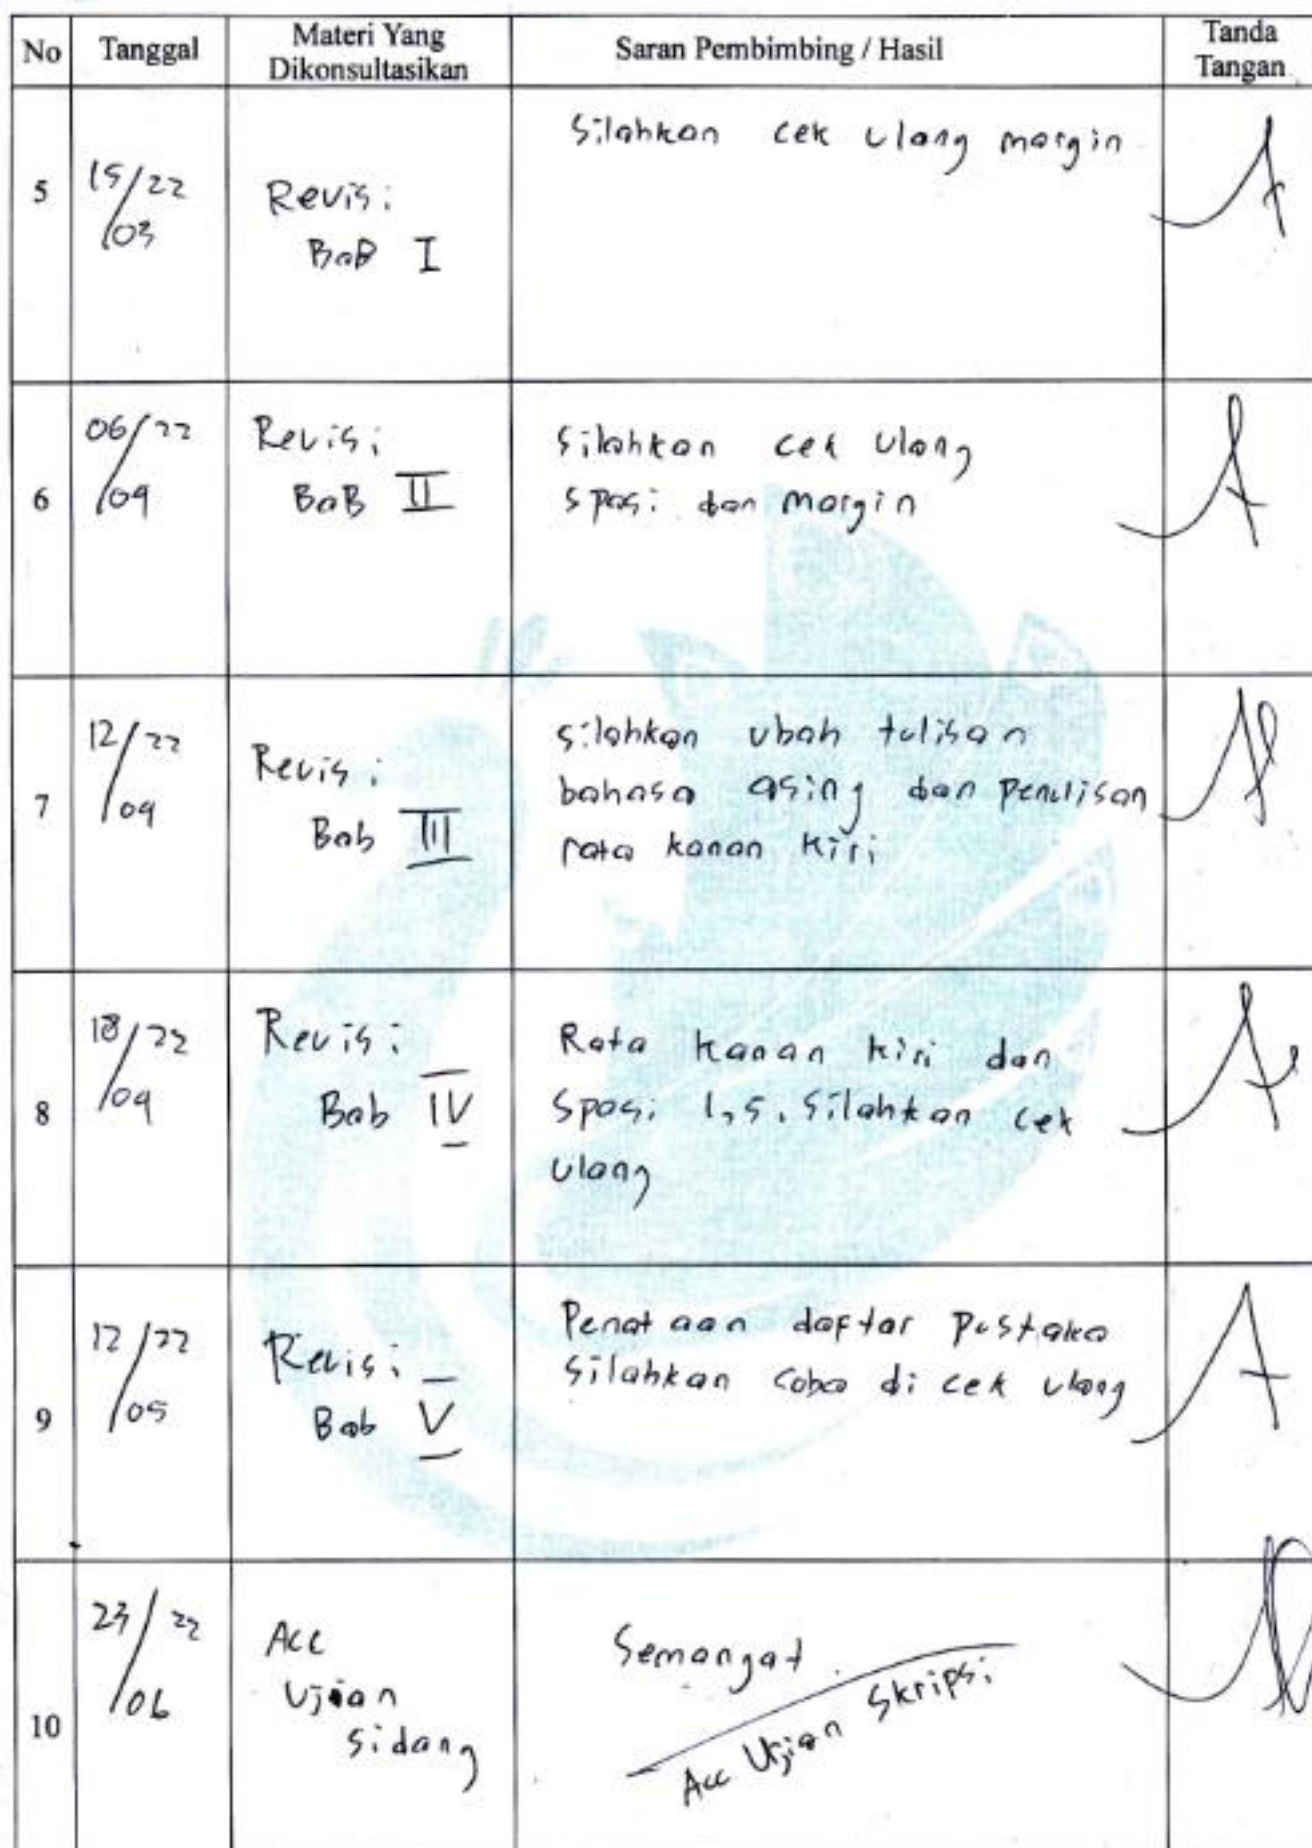 No Tanggal Materi Yang Dikonsultasikan Saran Pembimbing / Hasil Tanda Tangan
5
15/22
/03
Revisi
BaB I
Silahkan cek ulang margin
6
06/22
/04
Revisi
BaB II
Silahkan cek ulang
spasi dan margin
7
12/22
/04
Revisi
Bab III
silahkan ubah tulisan
bahasa asing dan penulisan
rata kanan kiri
8
18/22
/04
Revisi
Bab IV
Rata kanan kiri dan
Spasi 1,5. Silahkan cek
ulang
9
12/22
/05
Revisi
Bab V
Penataan daftar pustaka
silahkan coba di cek ulang
10
23/22
/06
Acc
Ujian
Sidang
Semangat
Acc Ujian Skripsi